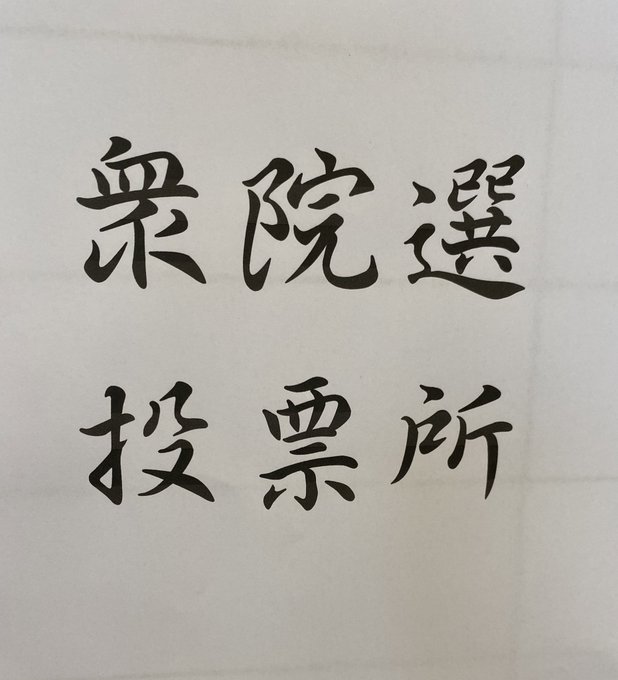 衆院選
投票所